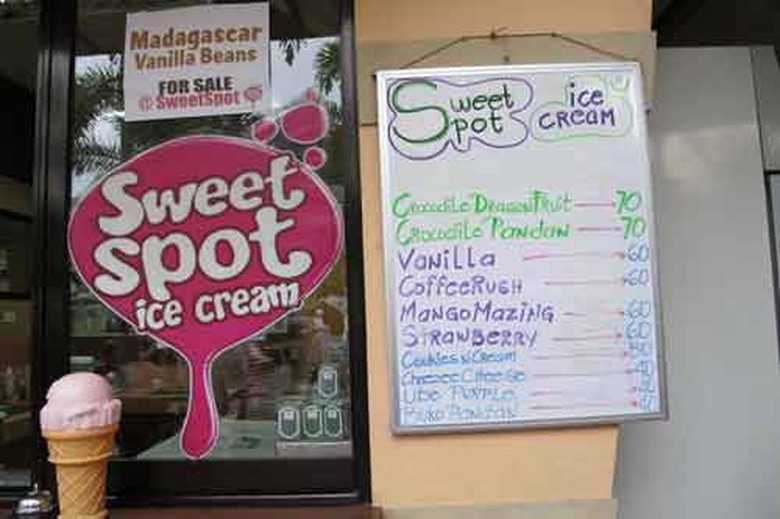 Madagascar
Vanilla Beans
FOR SALE
@ SweetSpot
Sweet
spot
ice cream
Sweet Spot
ice CREAM
Crocodile DragonFruit 70
Crocodile Pandan 70
Vanilla 60
CoffeeRush 60
MangoMazing 60
Strawberry 60
Cookies n Cream
Cheese
Ube Purple
Buko Pandan